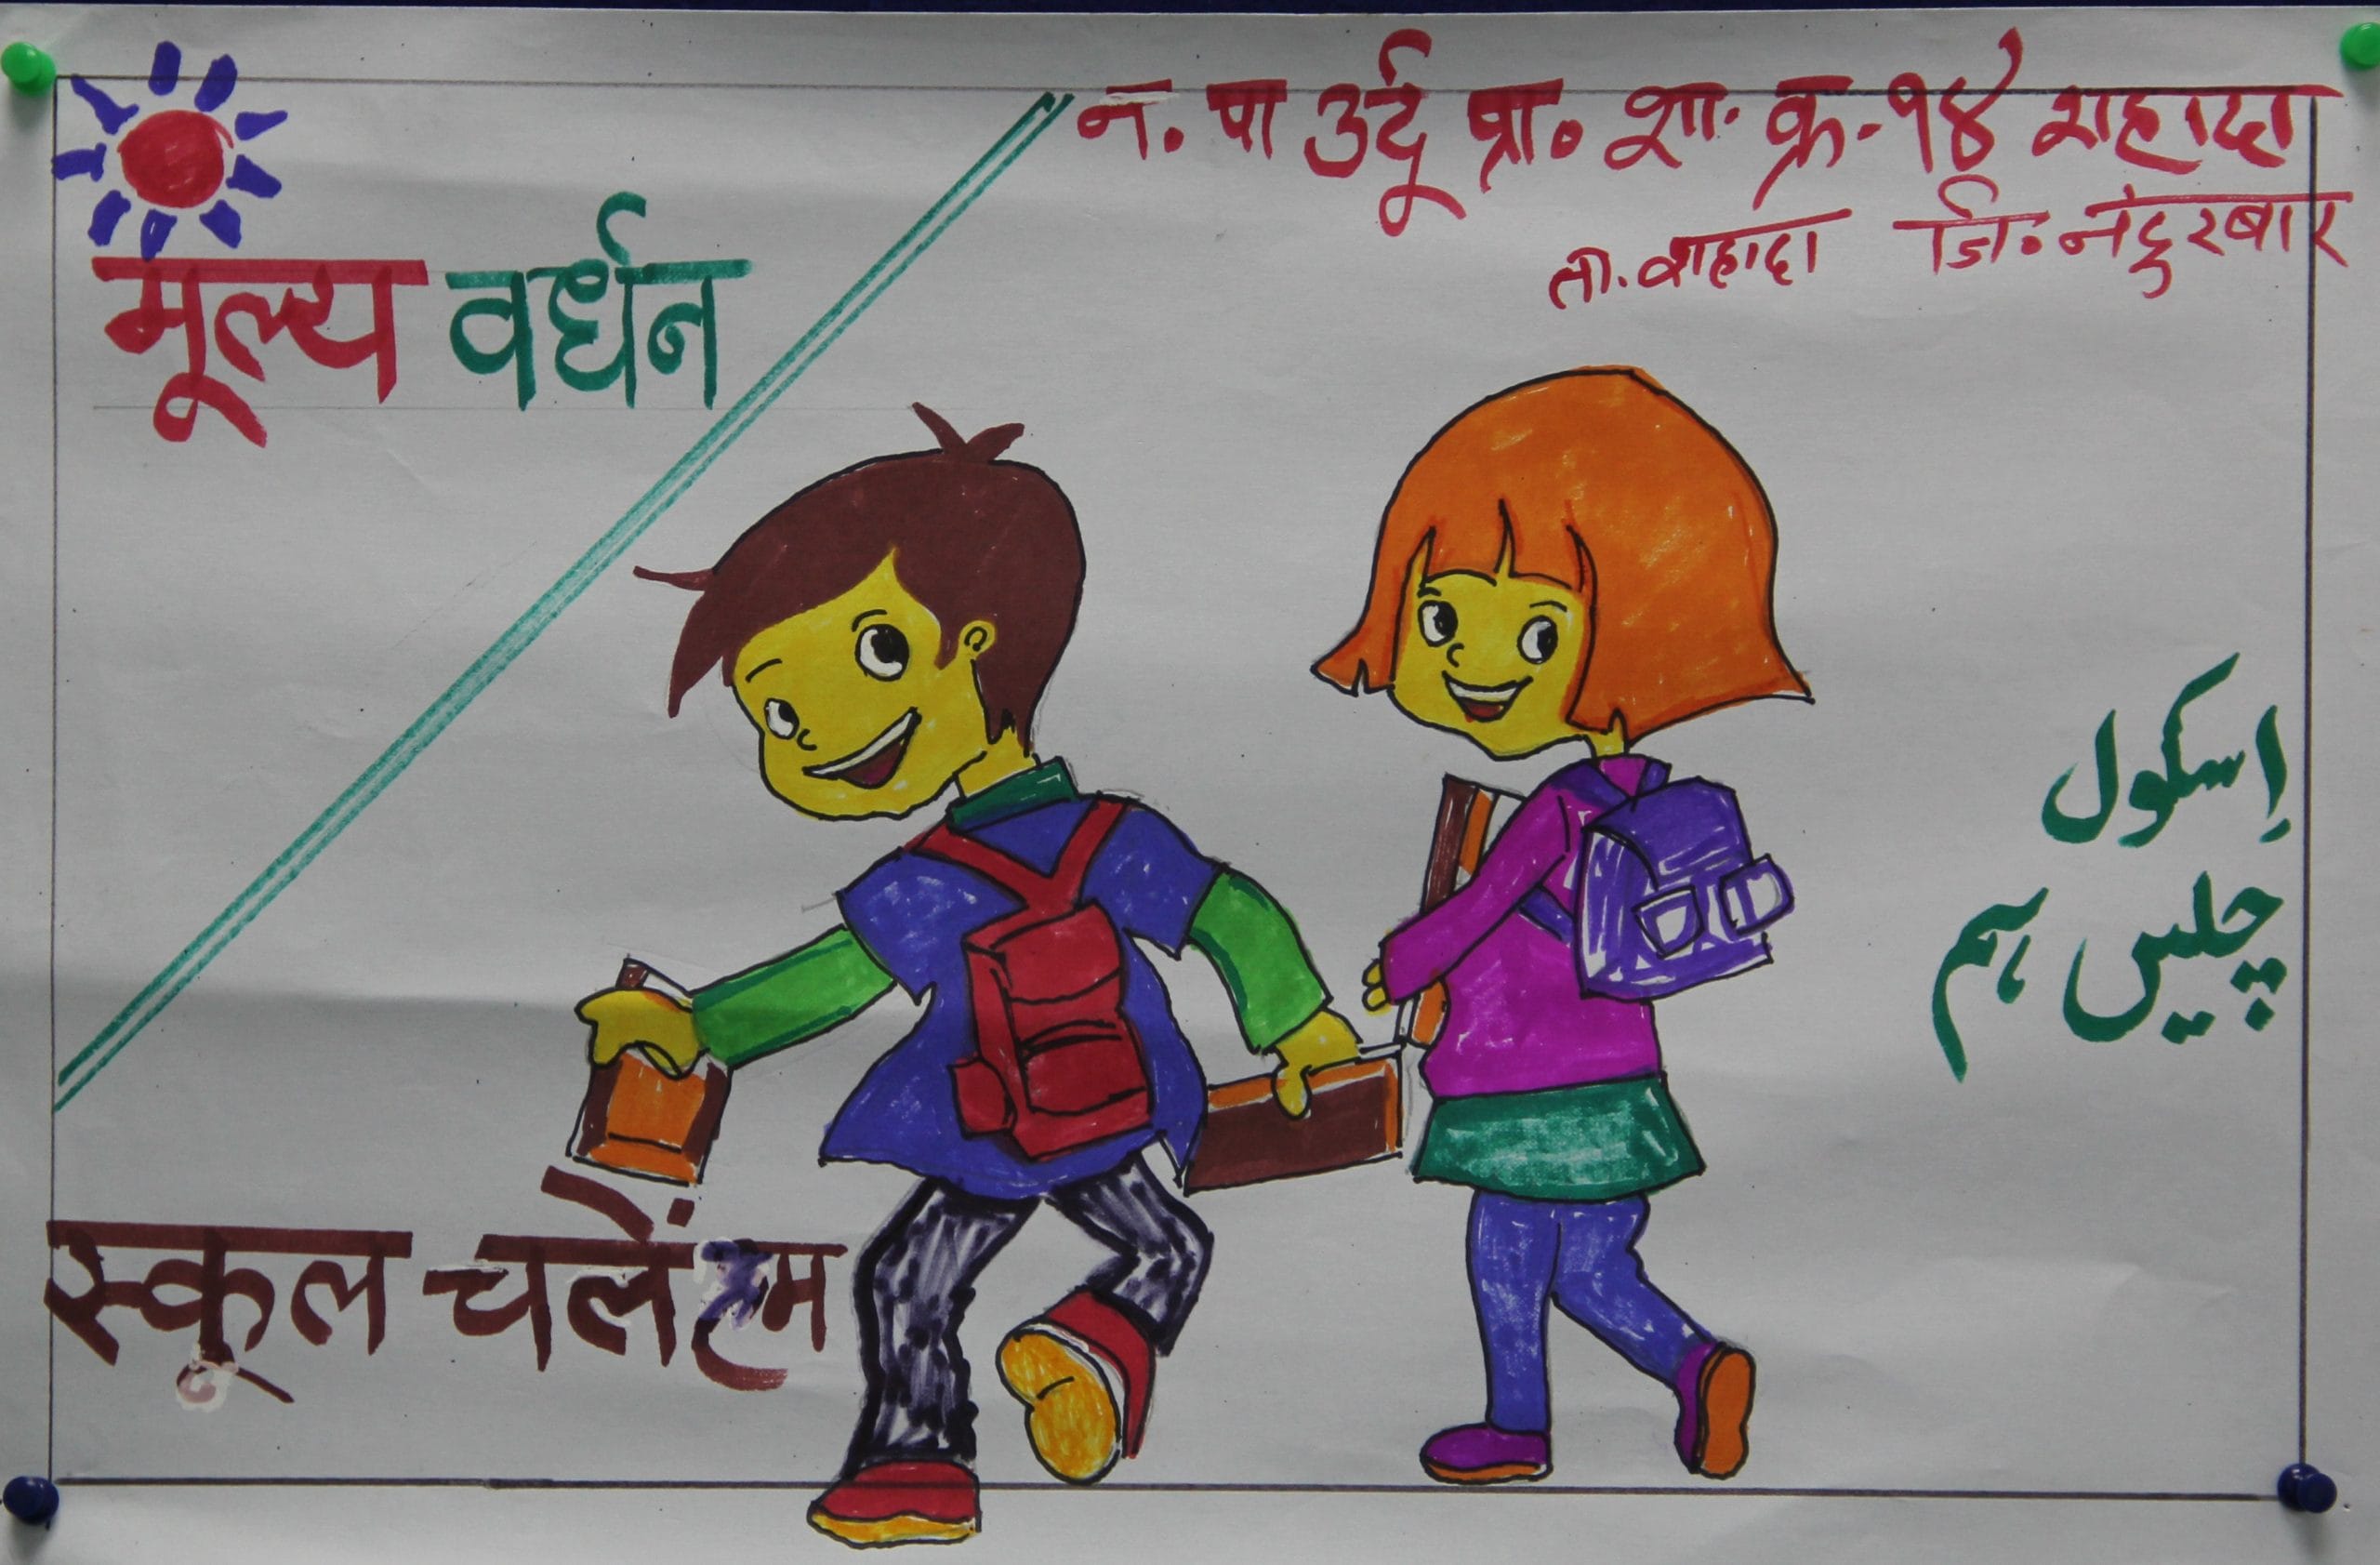 न. पा उर्दू प्रा. शा. क्र.-१४ शहादा
ता. शहादा जि. नंदुरबार
मूल्य वर्धन
اِسکول
چلیں ہم
स्कूल चलें हम